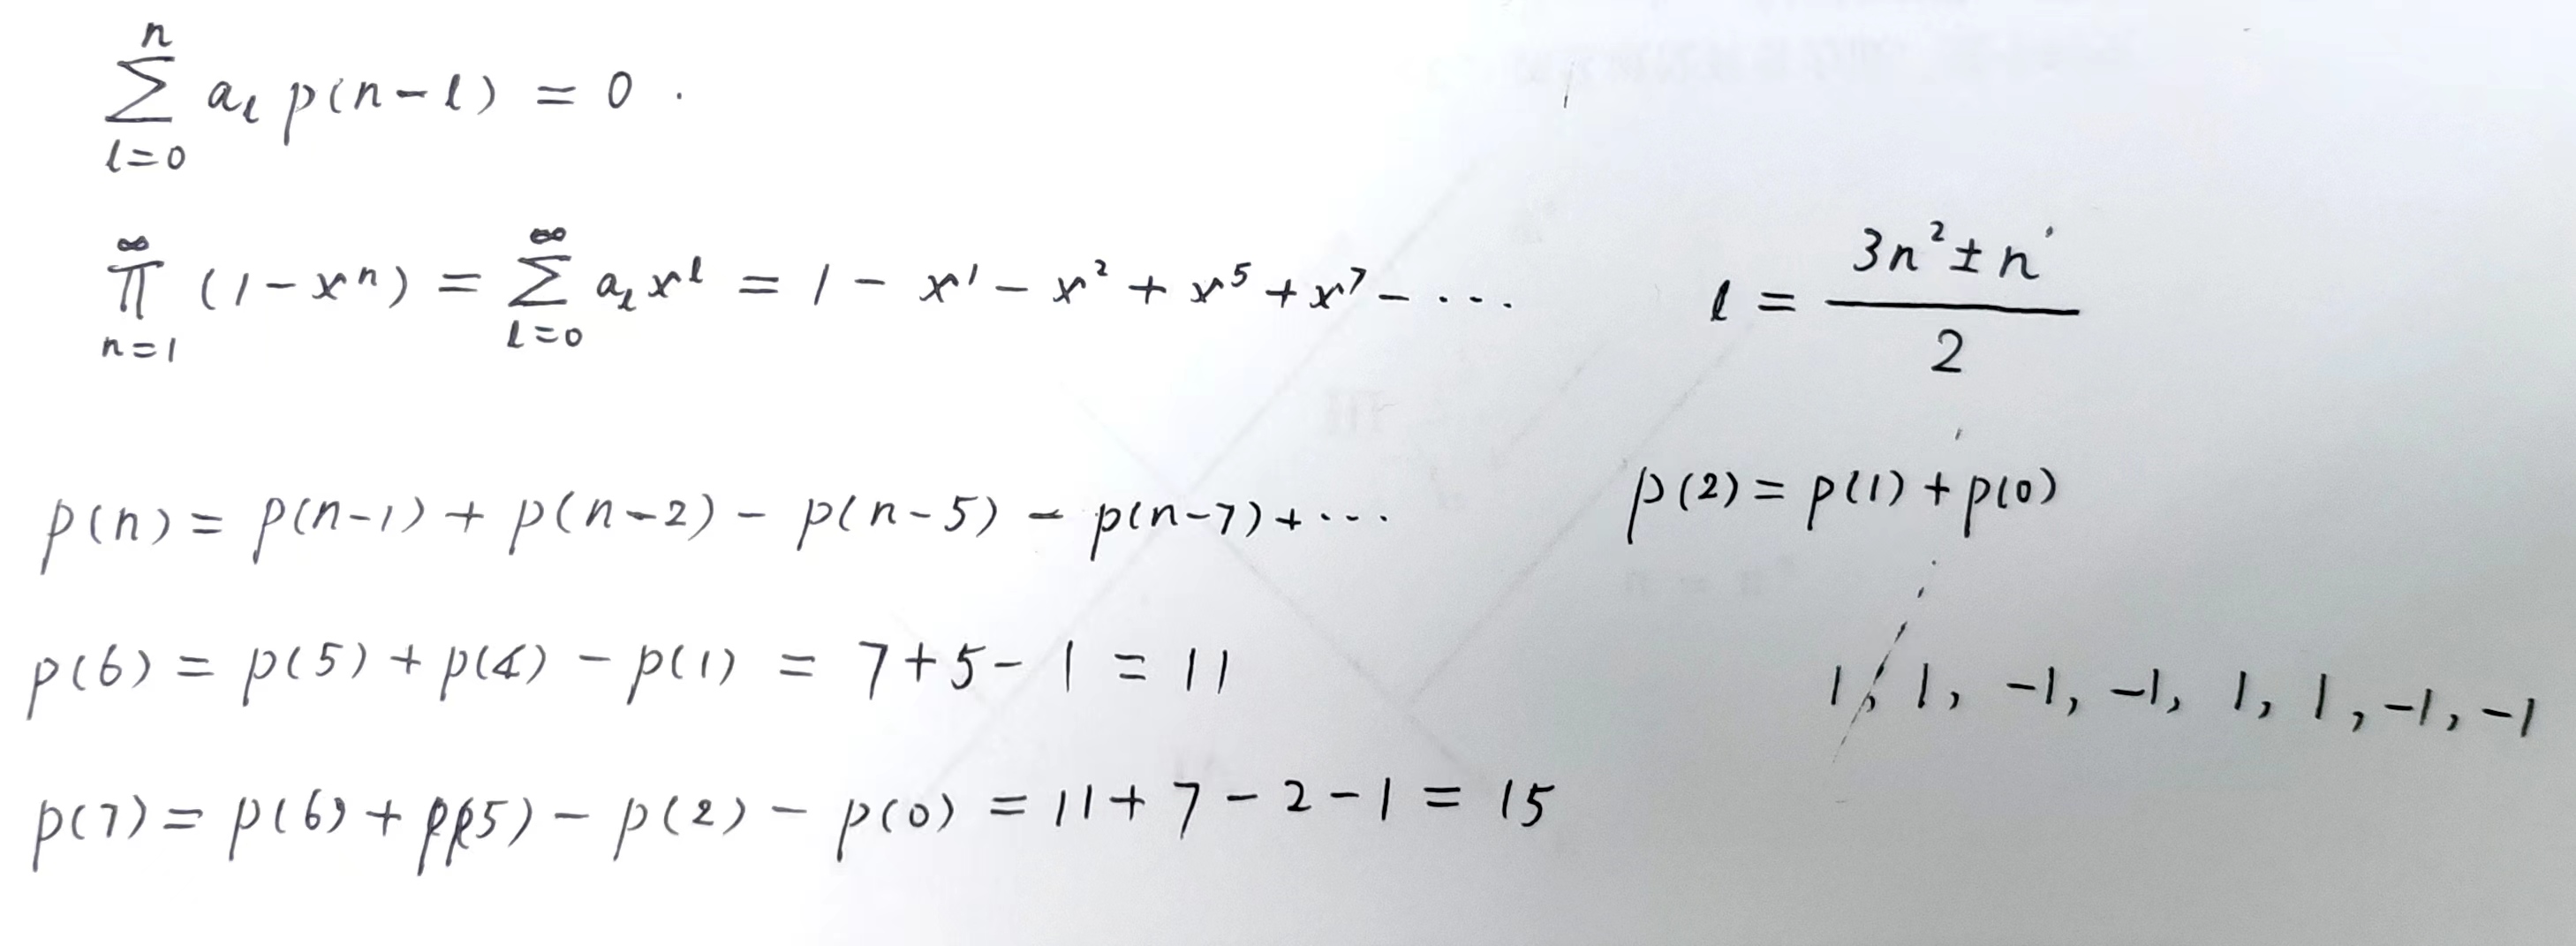 $\sum_{l=0}^{n} a_l p(n-l) = 0.$
$\prod_{n=1}^{\infty} (1-x^n) = \sum_{l=0}^{\infty} a_l x^l = 1 - x^1 - x^2 + x^5 + x^7 - \cdots$
$l = \frac{3n^2 \pm n}{2}$
$p(n) = p(n-1) + p(n-2) - p(n-5) - p(n-7) + \cdots$
$p(2) = p(1) + p(0)$
$p(6) = p(5) + p(4) - p(1) = 7 + 5 - 1 = 11$
$1, 1, -1, -1, 1, 1, -1, -1$
$p(7) = p(6) + p(5) - p(2) - p(0) = 11 + 7 - 2 - 1 = 15$